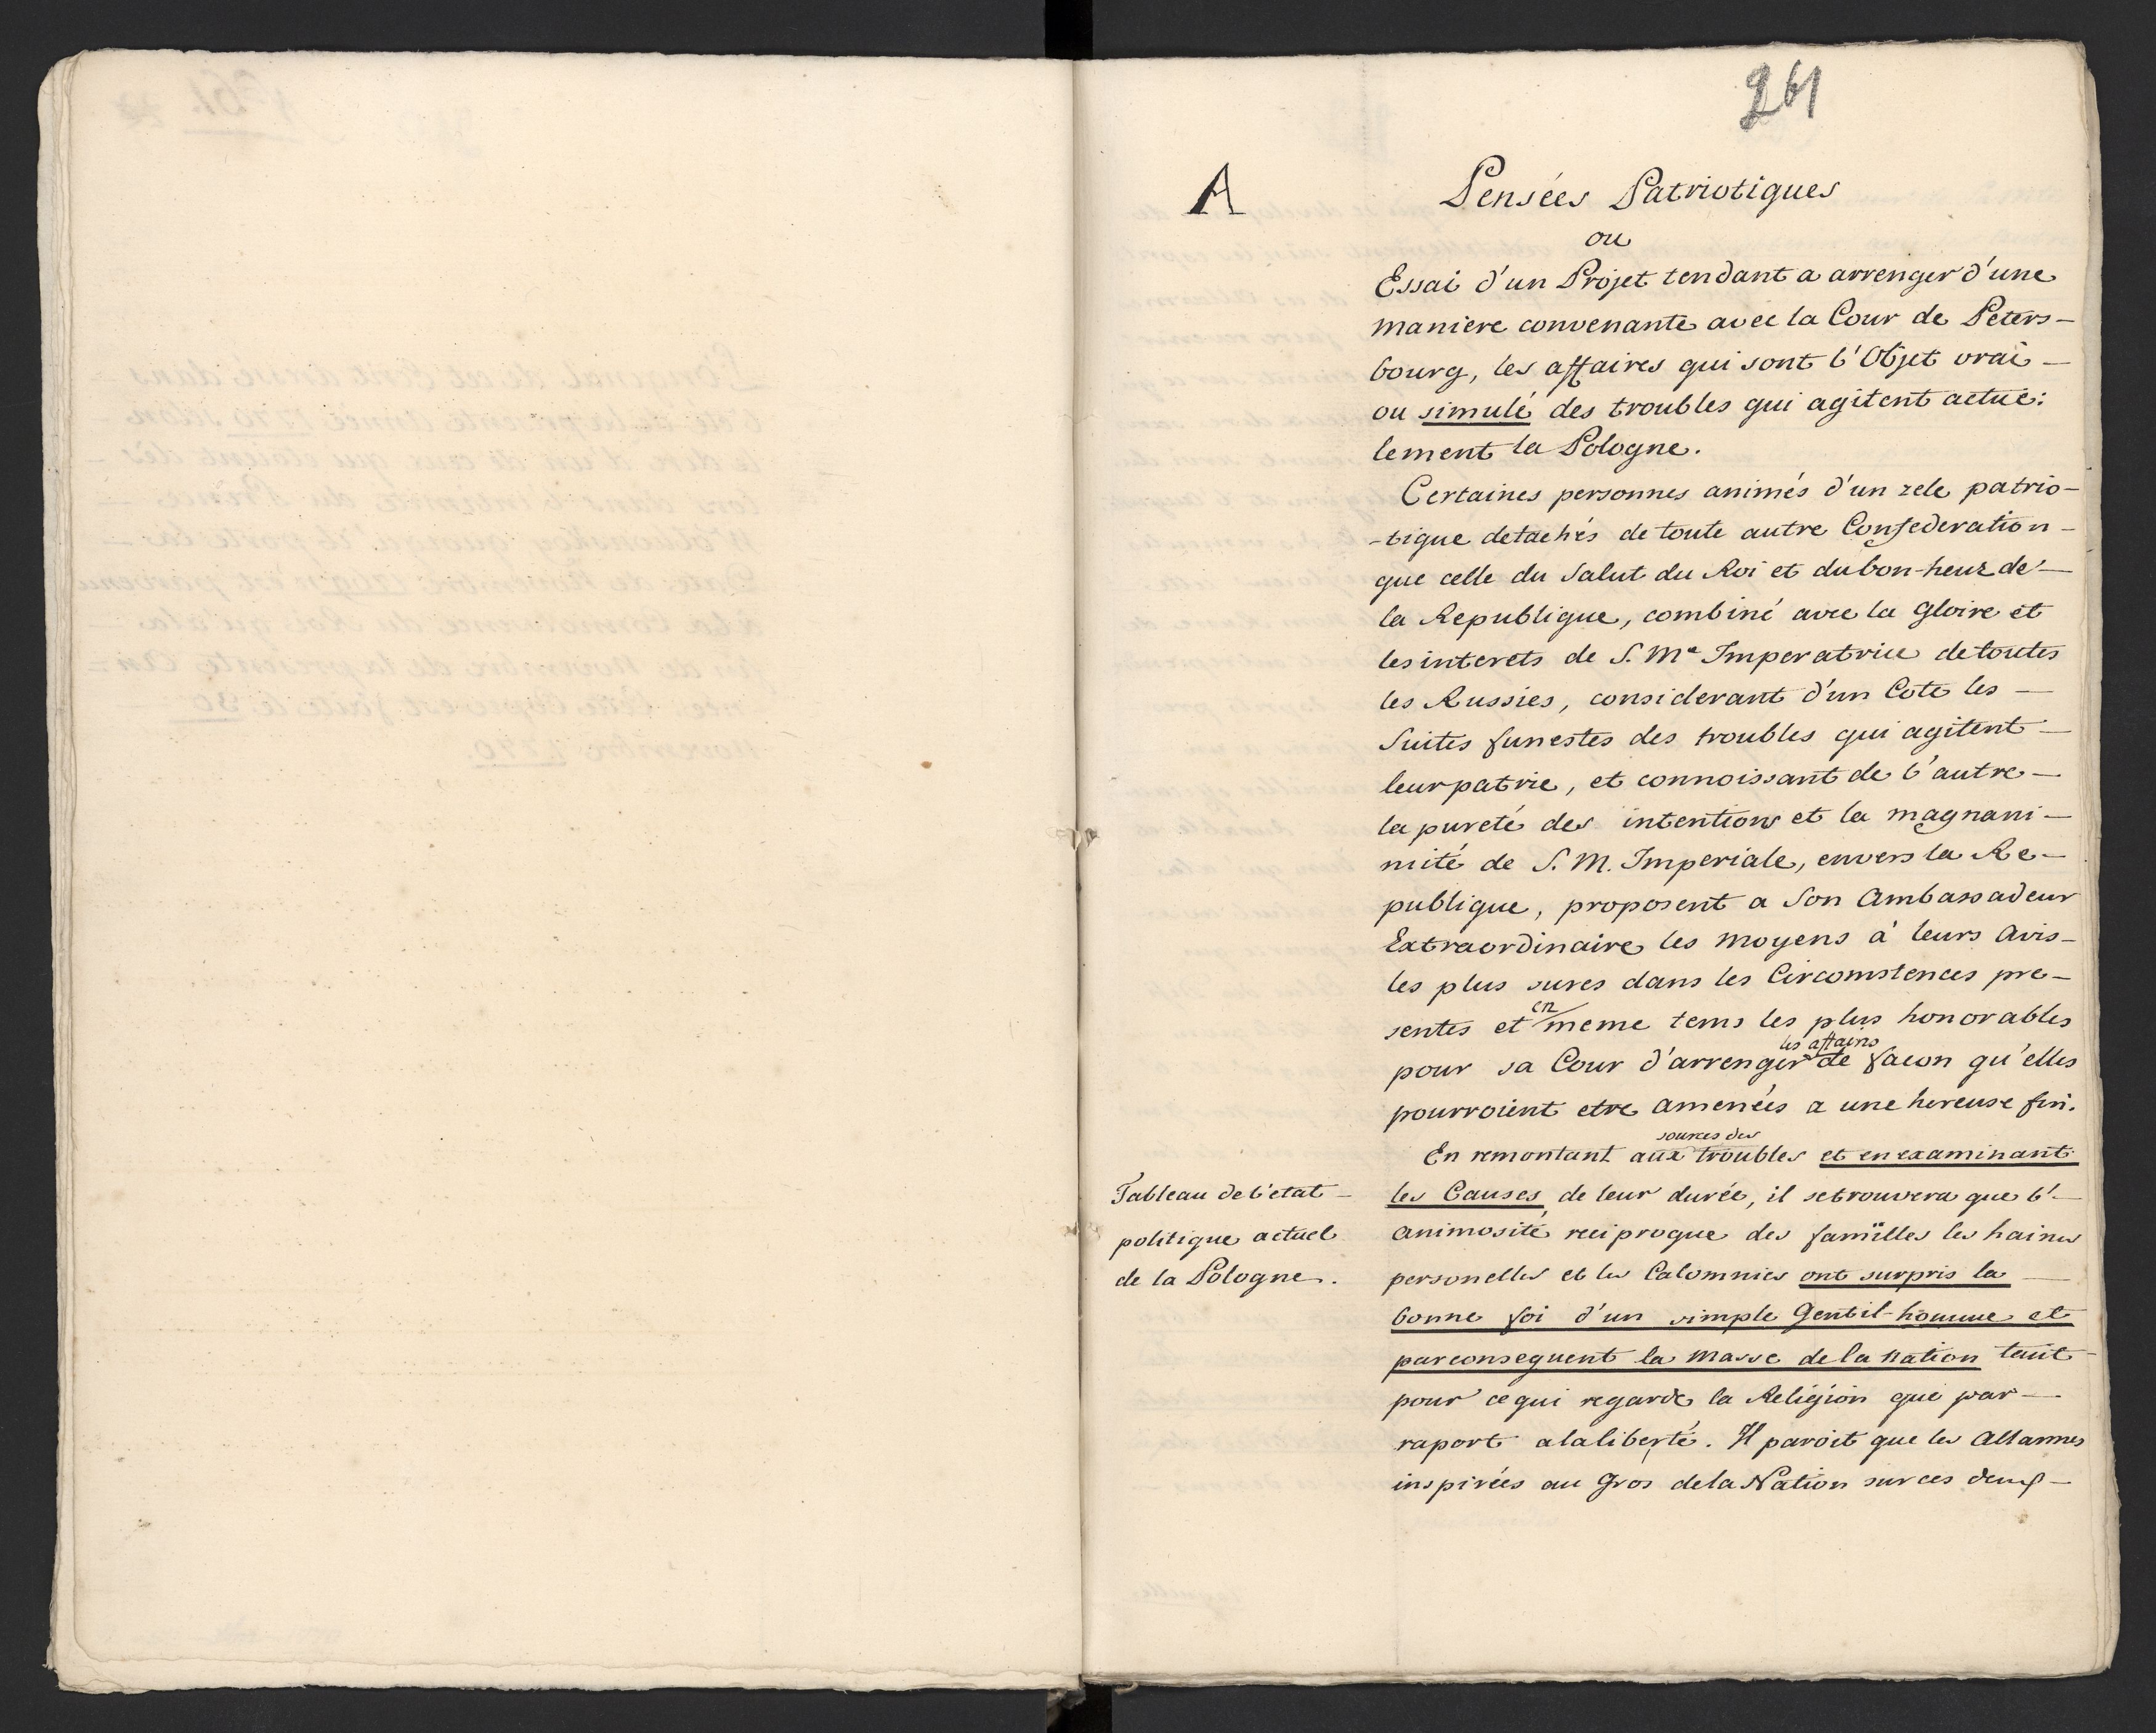 261
A
Pensées Patriotiques
ou
Essai d'un Projet tendant a arrenger d'une
maniere convenante avec la Cour de Peters-
bourg, les affaires qui sont l'Objet vrai -
ou simulé des troubles qui agitent actue:
lement la Pologne.
Certaines personnes animés d'un zele patrio-
-tique detachés de toute autre Confederation -
que celle du Salut du Roi et du bon-heur de -
la Republique, combiné avec la gloire et
les interets de S. Me Imperatrice de toutes
les Russies, considerant d'un Coté les -
Suites funestes des troubles qui agitent -
leur patrie, et connoissant de l'autre -
la pureté des intentions et la magnani-
mité de S. M. Imperiale, envers la Re-
publique, proposent a Son Ambassadeur
Extraordinaire les moyens à leurs Avis -
les plus sures dans les Circomstences pre-
sentes et en meme tems les plus honorables
pour sa Cour d'arrenger les affaires de facon qu'elles
pourroient etre amenées a une hereuse fin.
En remontant aux sources des troubles et en examinant
Tableau de l'etat -
politique actuel
de la Pologne.
les Causes de leur durée, il se trouvera que l'-
animosité reciproque des familles les haines
personelles et les Calomnies ont surpris la -
bonne foi d'un simple Gentil-homme et
par consequent la Masse de la Nation tant -
pour ce qui regarde la Religion que par -
raport a la liberté. Il paroit que les Allarmes
inspirées au Gros de la Nation sur ces deux -